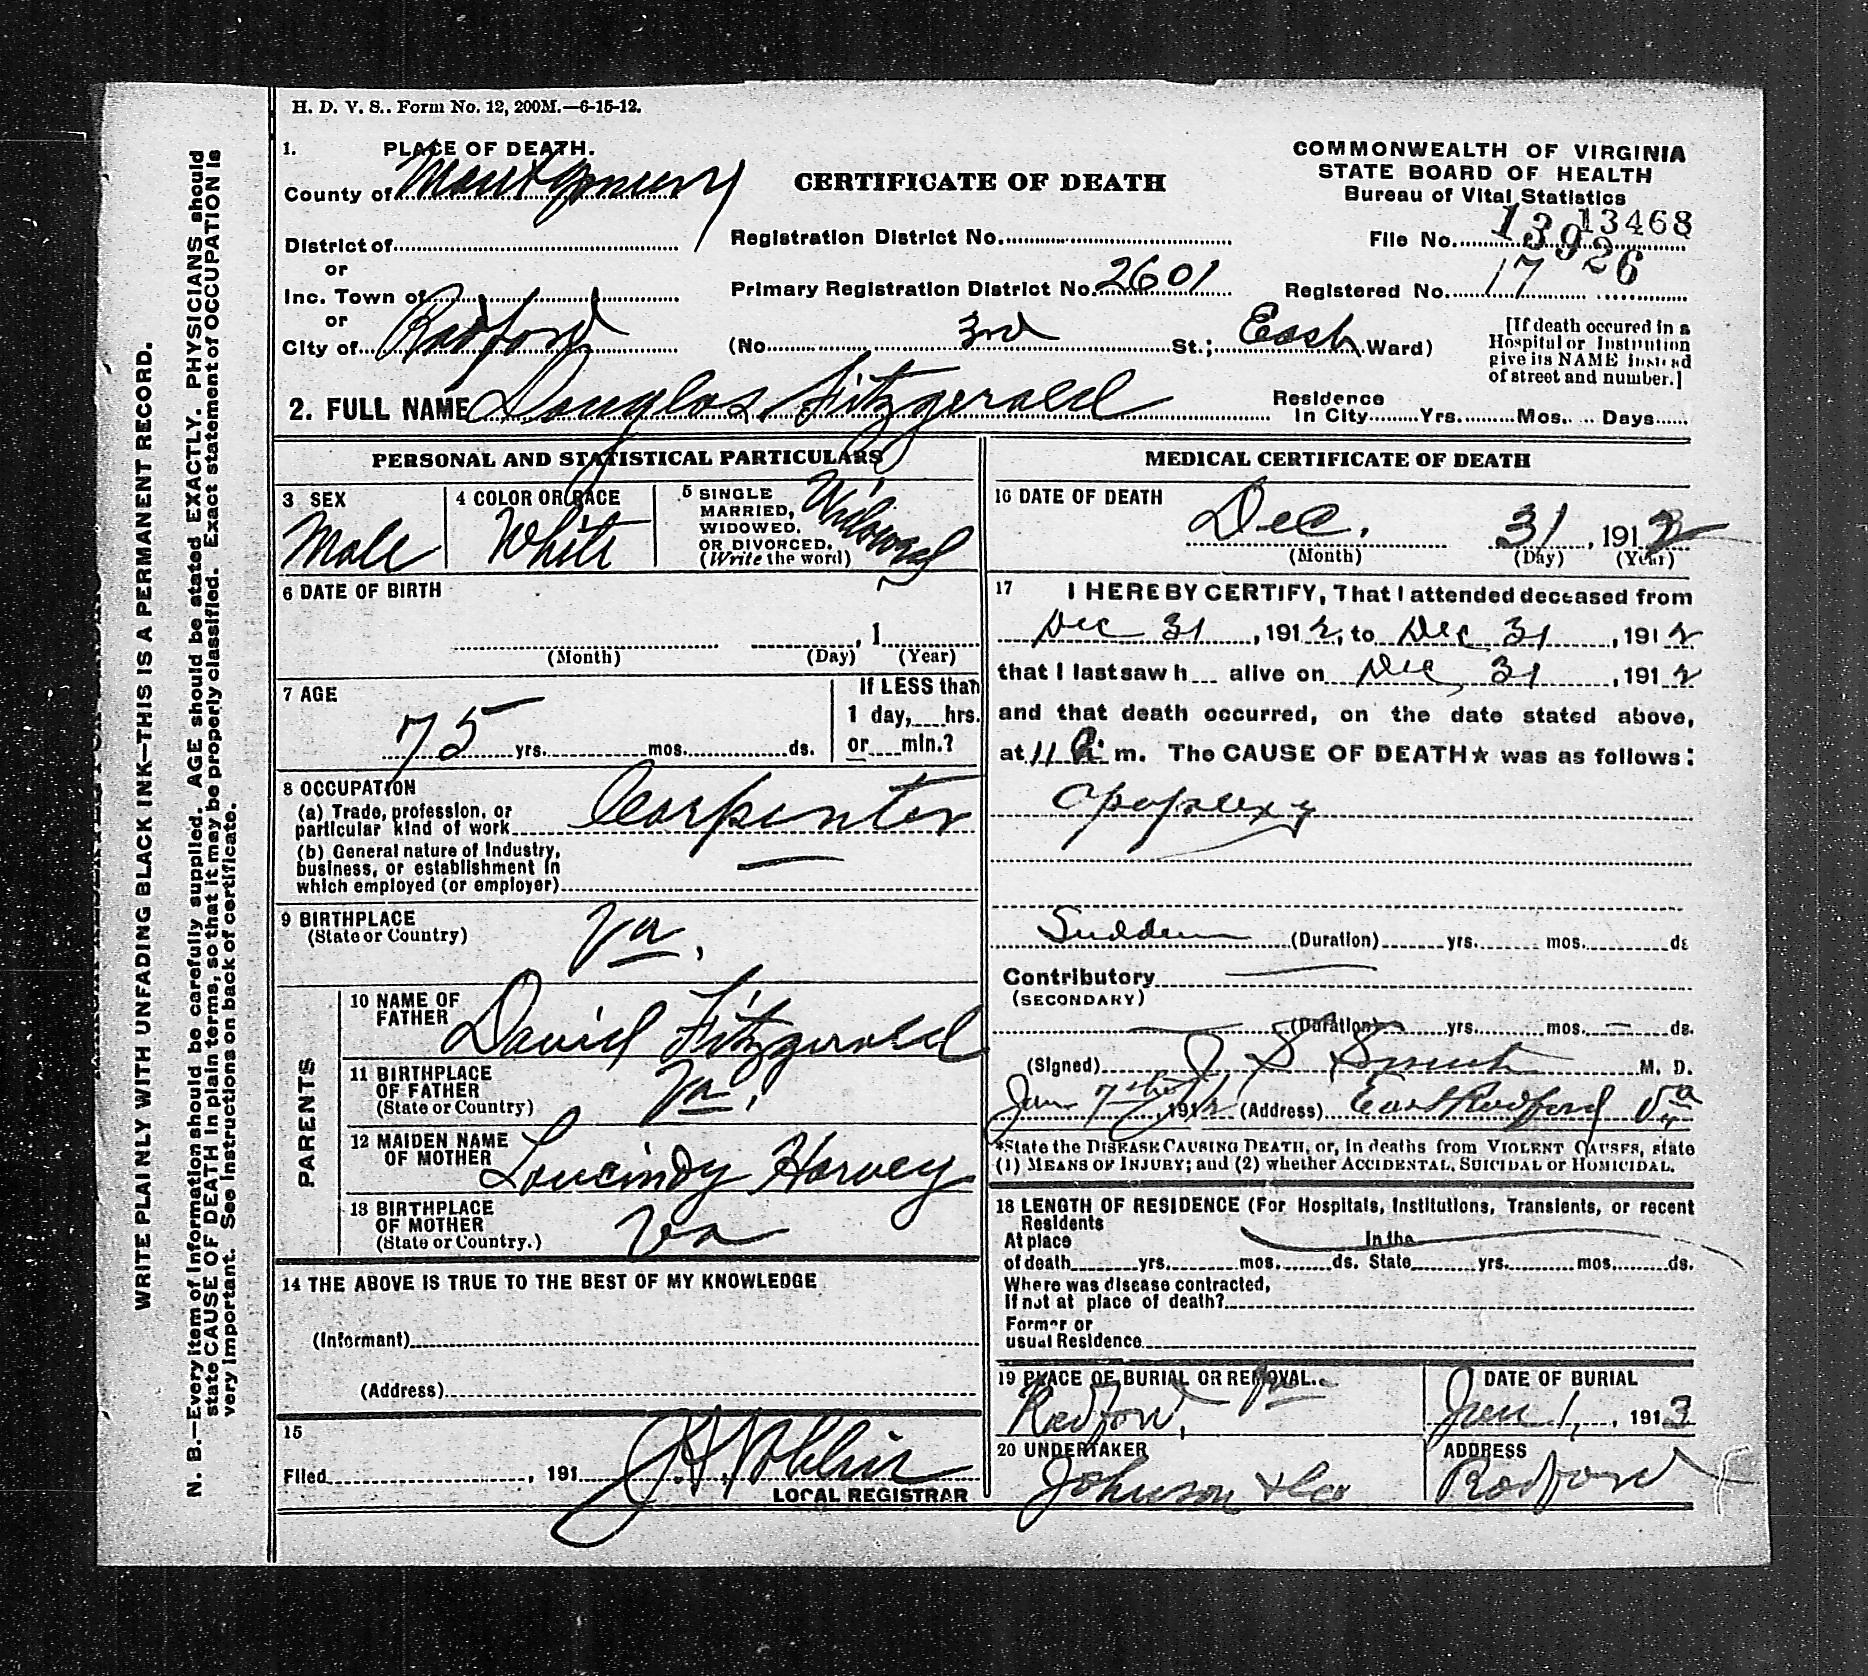 H. D. V. S.. Form No. 12, 200M.—6-15-12.
1. PLACE OF DEATH.
County of Montgomery
CERTIFICATE OF DEATH
COMMONWEALTH OF VIRGINIA
STATE BOARD OF HEALTH
Bureau of Vital Statistics
13468
District of
Registration District No.
File No. 13926
or
Inc. Town of
Primary Registration District No. 2601
Registered No. 17
or
City of Radford
(No. 3rd St.; East Ward)
[If death occured in a
Hospital or Institution
give its NAME instead
of street and number.]
2. FULL NAME Douglas Fitzgerald
Residence
In City Yrs. Mos. Days
PERSONAL AND STATISTICAL PARTICULARS
3 SEX
Male
4 COLOR OR RACE
White
5 SINGLE
MARRIED,
WIDOWED,
OR DIVORCED.
(Write the word)
Widowed
6 DATE OF BIRTH
, 1
(Month) (Day) (Year)
7 AGE
75 yrs. mos. ds.
If LESS than
1 day, hrs.
or min.?
8 OCCUPATION
(a) Trade, profession, or
particular kind of work Carpenter
(b) General nature of Industry,
business, or establishment in
which employed (or employer) —
9 BIRTHPLACE
(State or Country)
Va.
PARENTS
10 NAME OF
FATHER
David Fitzgerald
11 BIRTHPLACE
OF FATHER
(State or Country)
Va.
12 MAIDEN NAME
OF MOTHER
Loucindy Harvey
13 BIRTHPLACE
OF MOTHER
(State or Country.)
Va
14 THE ABOVE IS TRUE TO THE BEST OF MY KNOWLEDGE
(Informant)
(Address)
15
Filed , 191
LOCAL REGISTRAR
MEDICAL CERTIFICATE OF DEATH
16 DATE OF DEATH
Dec. 31, 1912
(Month) (Day) (Year)
17 I HEREBY CERTIFY, That I attended deceased from
Dec 31, 1912, to Dec 31, 1912
that I last saw h alive on Dec 31, 1912
and that death occurred, on the date stated above,
at 11 a. m. The CAUSE OF DEATH★ was as follows:
apoplexy
Sudden (Duration) yrs. mos. ds
Contributory —
(SECONDARY)
— (Duration) yrs. mos. — ds.
(Signed) J S M. D.
Jan 7th, 191 (Address) East Radford Va
*State the DISEASE CAUSING DEATH, or, in deaths from VIOLENT CAUSES, state
(1) MEANS OF INJURY; and (2) whether ACCIDENTAL, SUICIDAL or HOMICIDAL.
18 LENGTH OF RESIDENCE (For Hospitals, Institutions, Transients, or recent
Residents
At place In the
of death yrs. mos. ds. State yrs. mos. ds.
Where was disease contracted,
If not at place of death?
Former or
usual Residence
19 PLACE OF BURIAL OR REMOVAL.
Radford, Va
DATE OF BURIAL
Jan 1, 1913
20 UNDERTAKER
Johnson & Co
ADDRESS
Radford
WRITE PLAINLY WITH UNFADING BLACK INK—THIS IS A PERMANENT RECORD.
N. B.—Every item of information should be carefully supplied. AGE should be stated EXACTLY. PHYSICIANS should
state CAUSE OF DEATH in plain terms, so that it may be properly classified. Exact statement of OCCUPATION is
very important. See instructions on back of certificate.